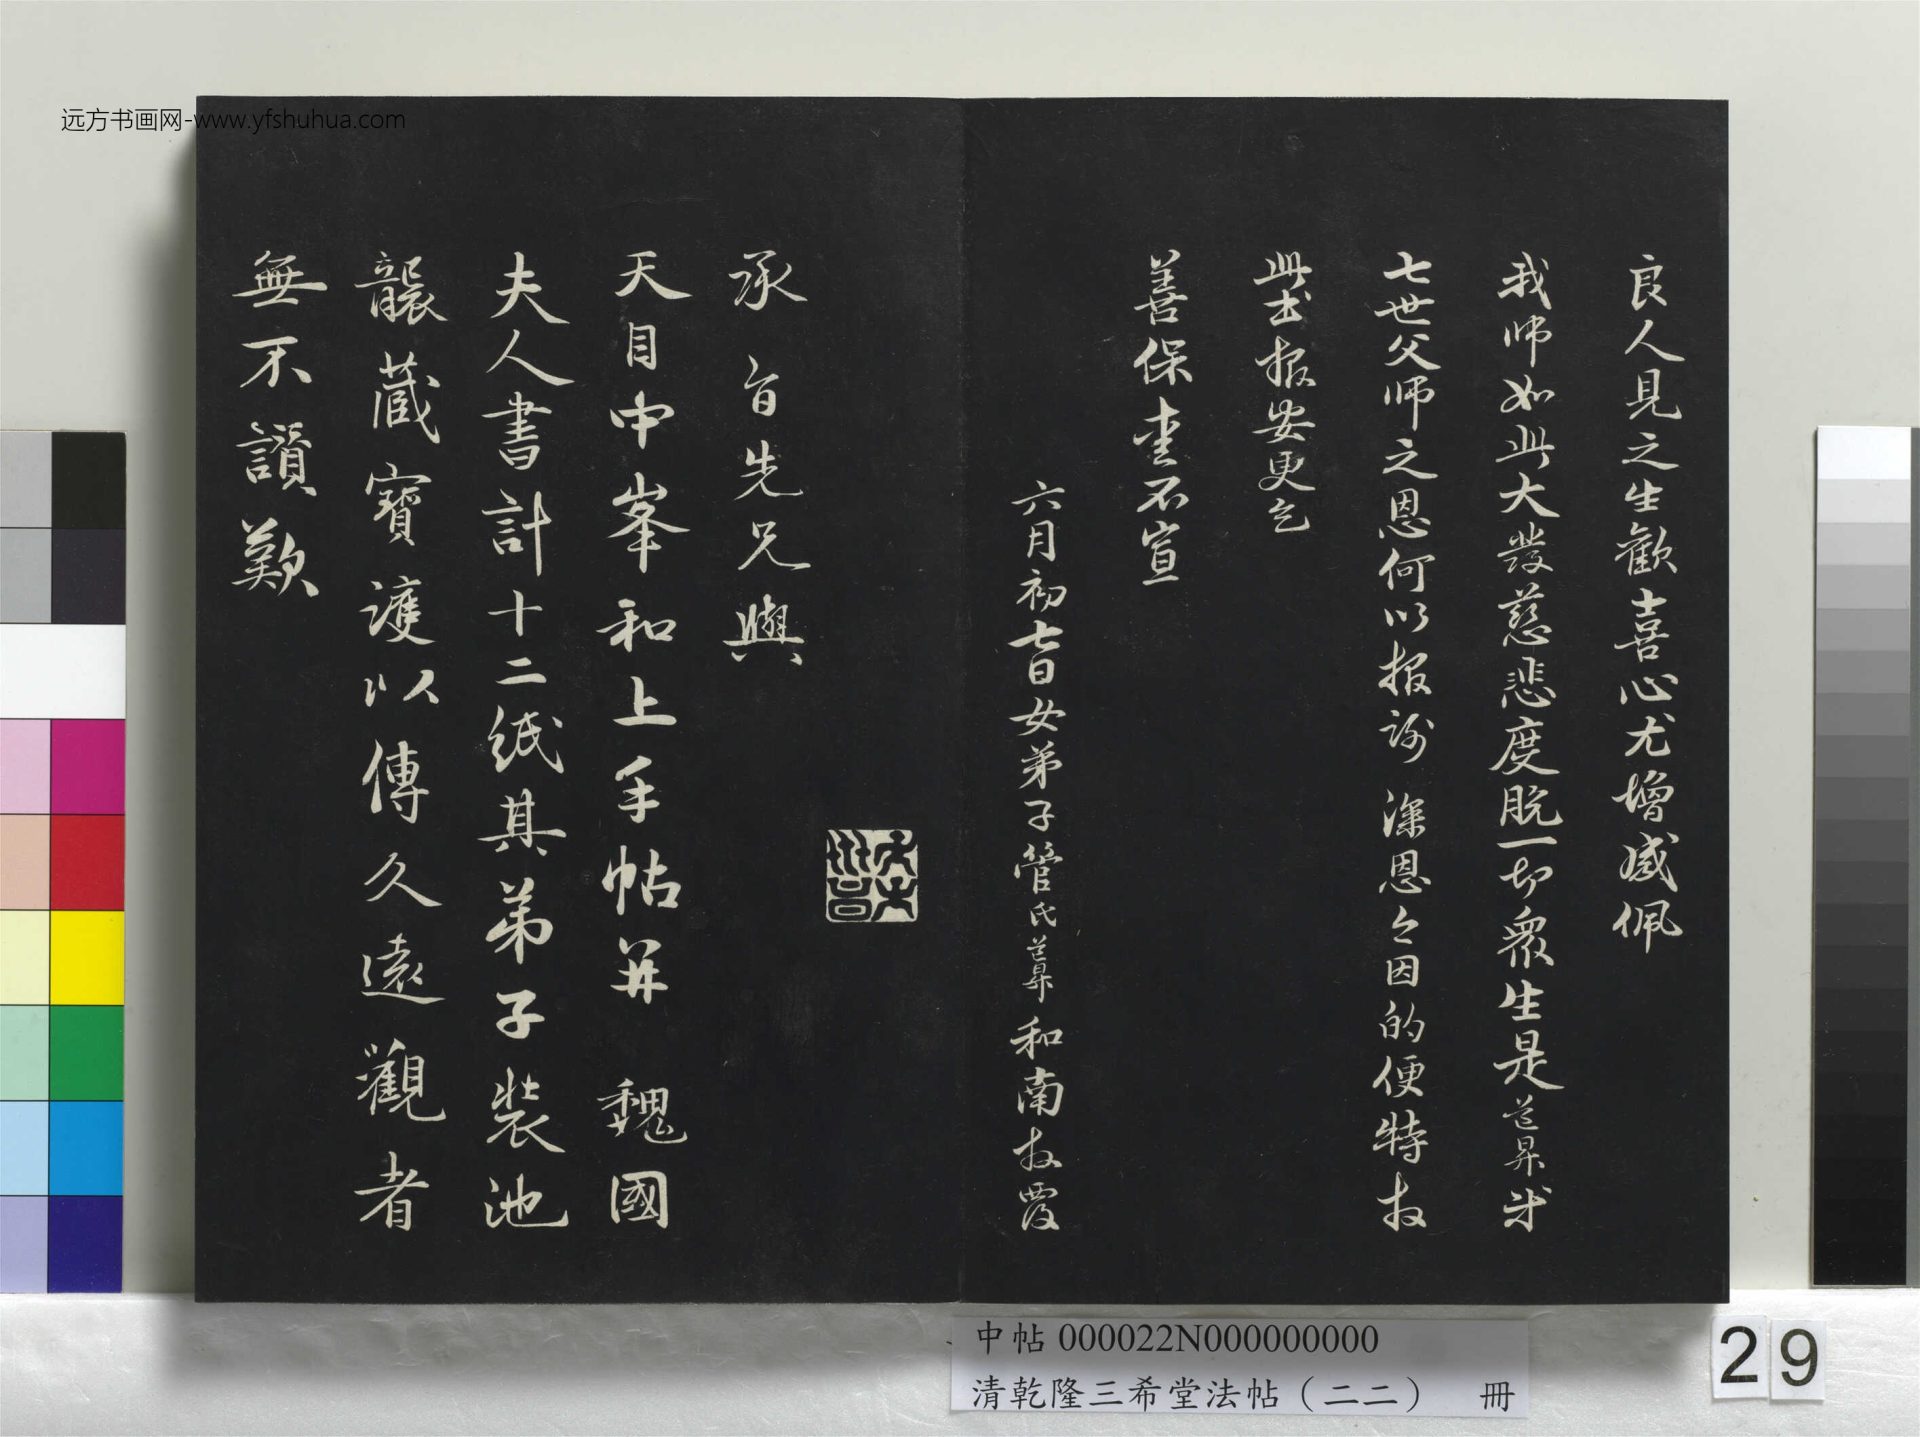 远方书画网-www.yfshuhua.com
良人見之生歡喜心尤增感佩
我師如此大發慈悲度脫一切衆生是道昇生
七世父師之恩何以报謝 深恩之因的便特拜
此書报安更乞
善保重不宣
六月初七日女弟子管氏道昇和南拜覆
承旨先兄與
天目中峯和上手帖并 魏國
夫人書計十二紙其弟子裝池
襲藏寶護以傳久遠觀者
無不讚歎
中帖 000022N000000000
清乾隆三希堂法帖（二二） 冊
29